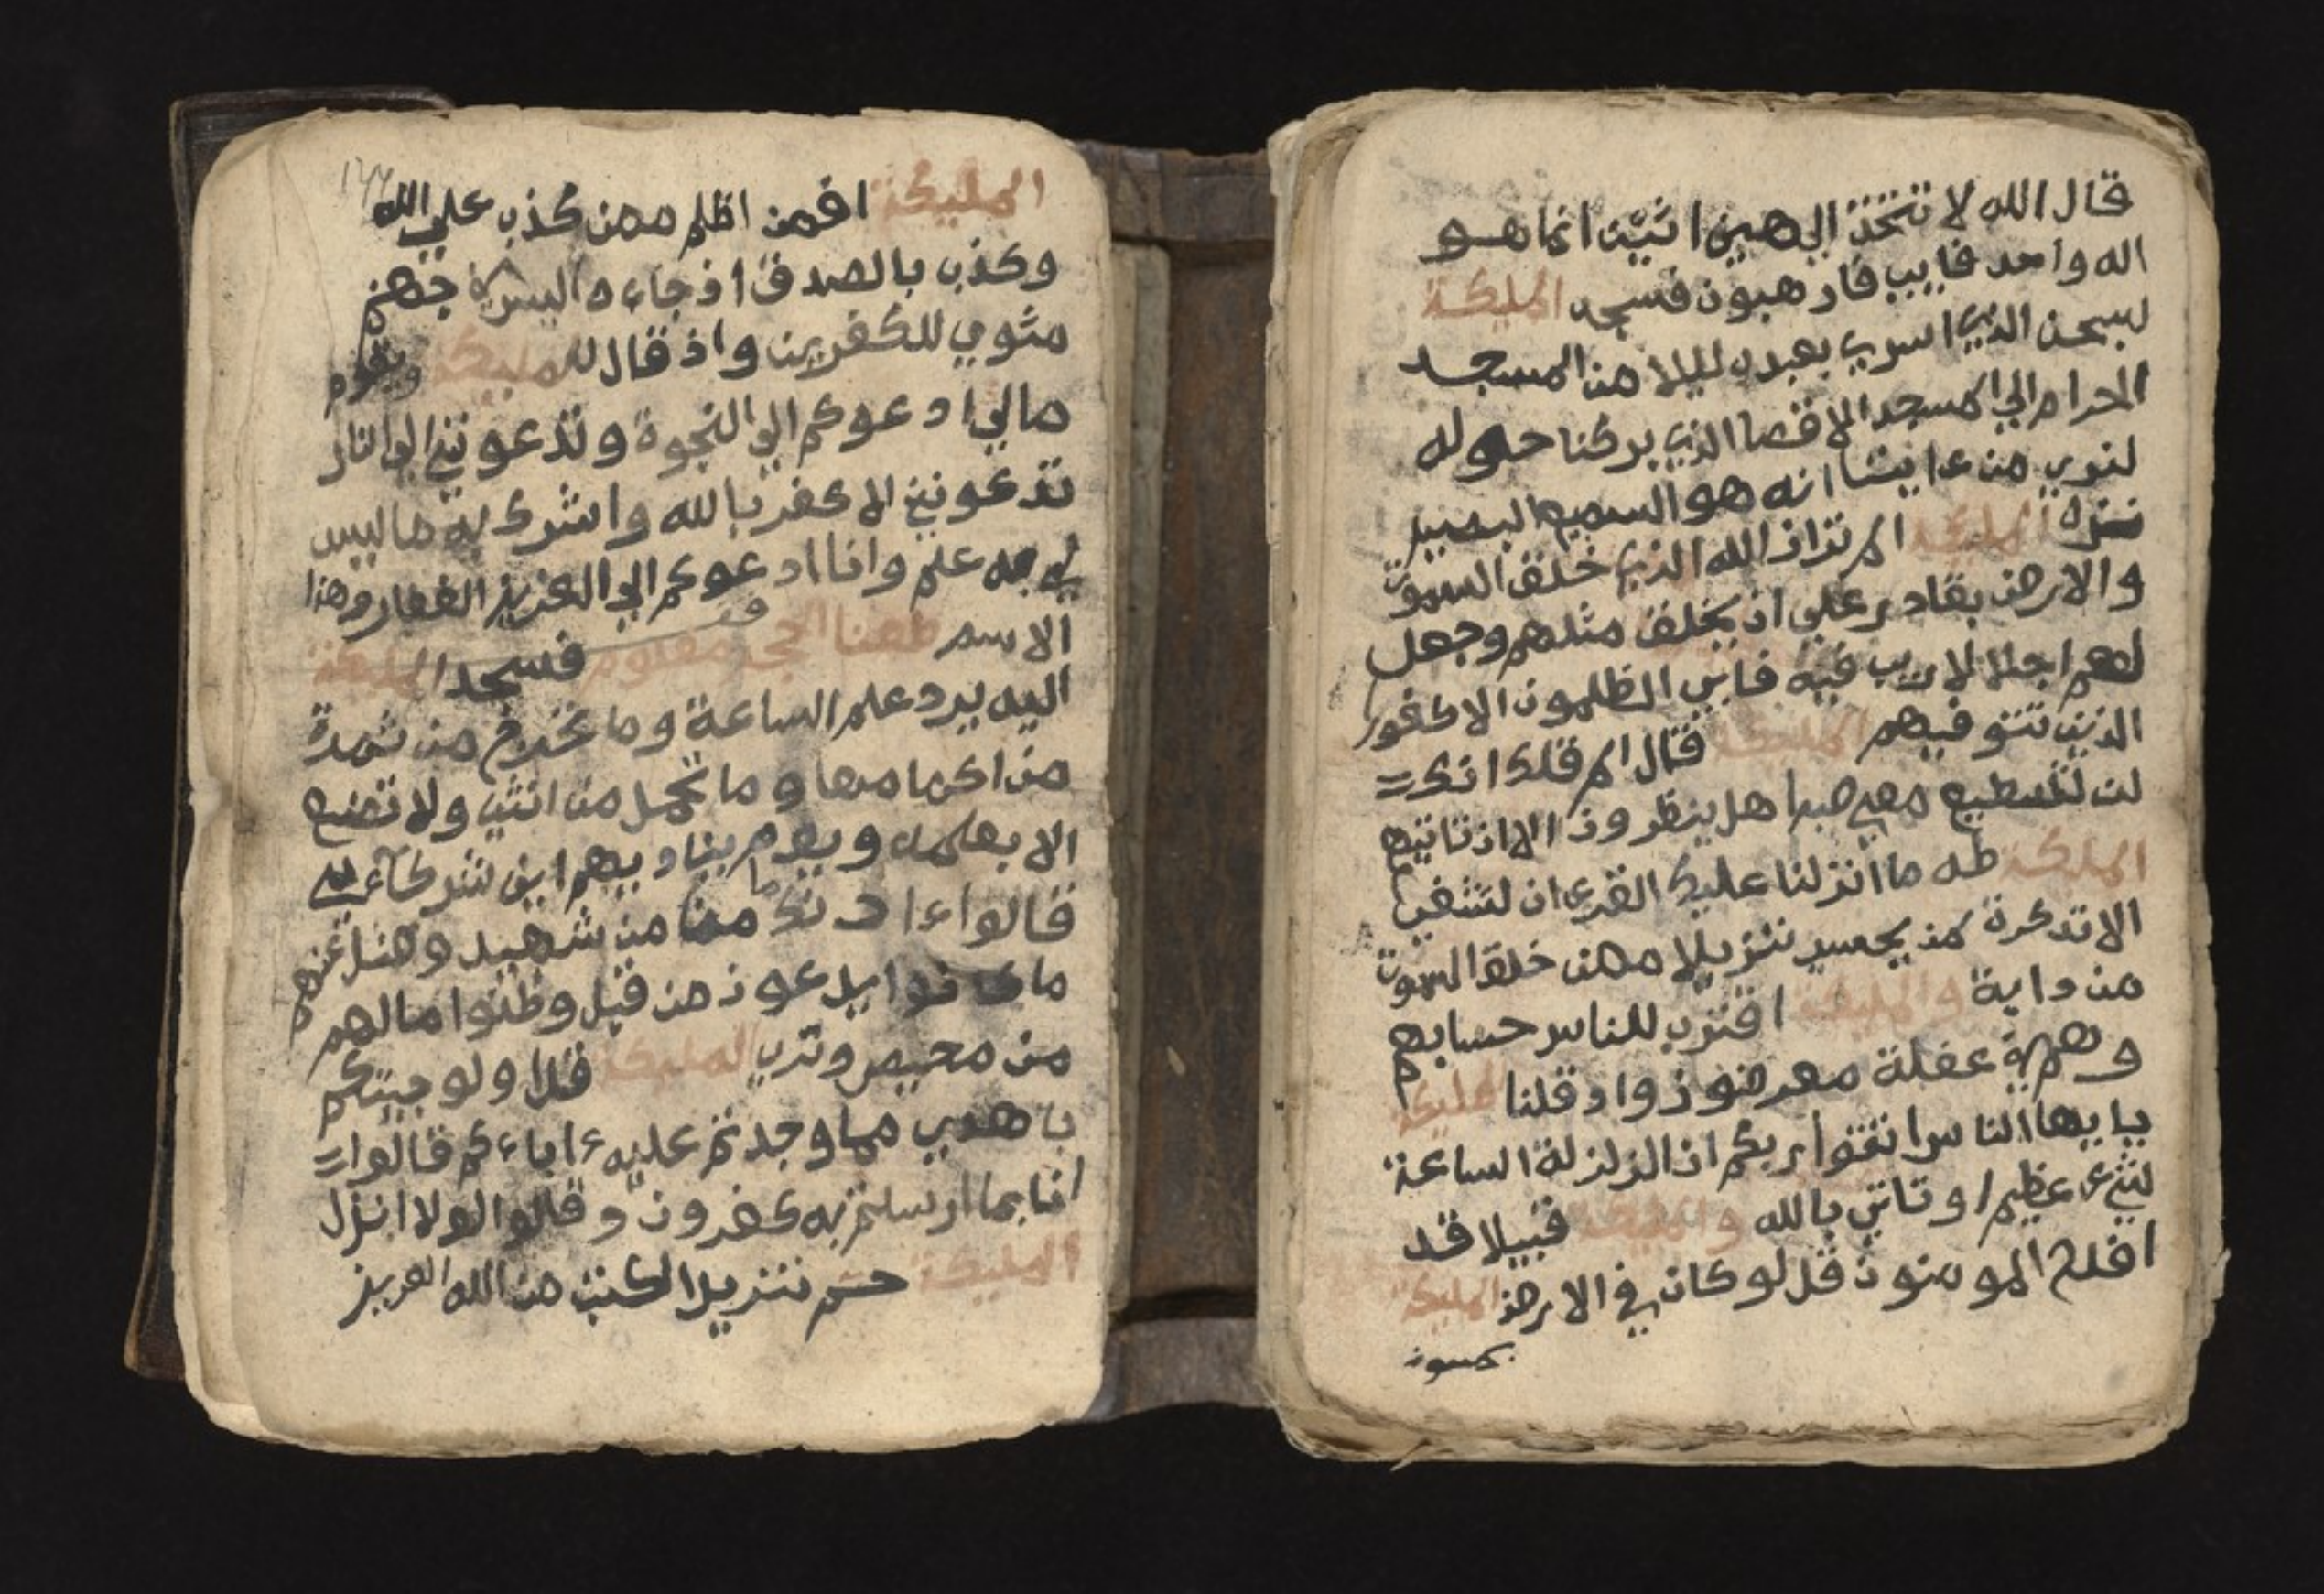 قال الله لا تتخذ الهين اثنين انما هو
اله واحد فاييي فارهبون فسجد المليكة
لسبحن الذي اسرى بعبده ليلا من المسجد
الحرام الي المسجد الاقصا الذي بركنا حوله
لنوريه من ءايتنا انه هو السميع البصير
المليكة الم تر ان الله الذي خلق السموت
والارض بقادر علي ان يخلق مثلهم وجعل
لهم اجلا لا ريب فيه فابي الظلمون الا كفور
الذين تتوفيهم المليكة قال الم اقل لك انك
لن تستطيع معي صبرا هل ينظرون الا ان تاتيهم
المليكة طه ما انزلنا عليك القرءان لتشقي
الا تذكرة لمن يخشي تنزيلا ممن خلق السموت
من دابة والمليكة اقترب للناس حسابهم
وهم في غفلة معرضون واذ قلنا للمليكة
يايها الناس اتقوا ربكم ان الزلزلة الساعة
لشيء عظيم او تاتي بالله والمليكة قبيلا قد
افلح المومنون قل لو كان في الارض المليكة
يمشون
المليكة افمن اظلم ممن كذب علي الله
وكذب بالصدق اذ جاءه اليس في جهنم
مثوي للكفرين واذ قال للمليكة ويقوم
مالي ادعوكم الي النجوة وتدعونني الي النار
تدعونني لاكفر بالله واشرك به ما ليس
لي به علم وانا ادعوكم الي العزيز الغفار وهذا
الاسم فسجد المليكة
اليه يرد علم الساعة وما تخرج من ثمرة
من اكمامها وما تحمل من انثي ولا تضع
الا بعلمه ويوم يناديهم اين شركاءي
قالوا ءاذنك ما منا من شهيد وضل عنهم
ما كانوا يدعون من قبل وظنوا مالهم
من محيص وتري المليكة قل اولو جيتكم
باهدي مما وجدتم عليه ءاباءكم قالوا
انا بما ارسلتم به كفرون وقالوا لولا انزل
المليكة حم تنزيل الكتب من الله العزيز